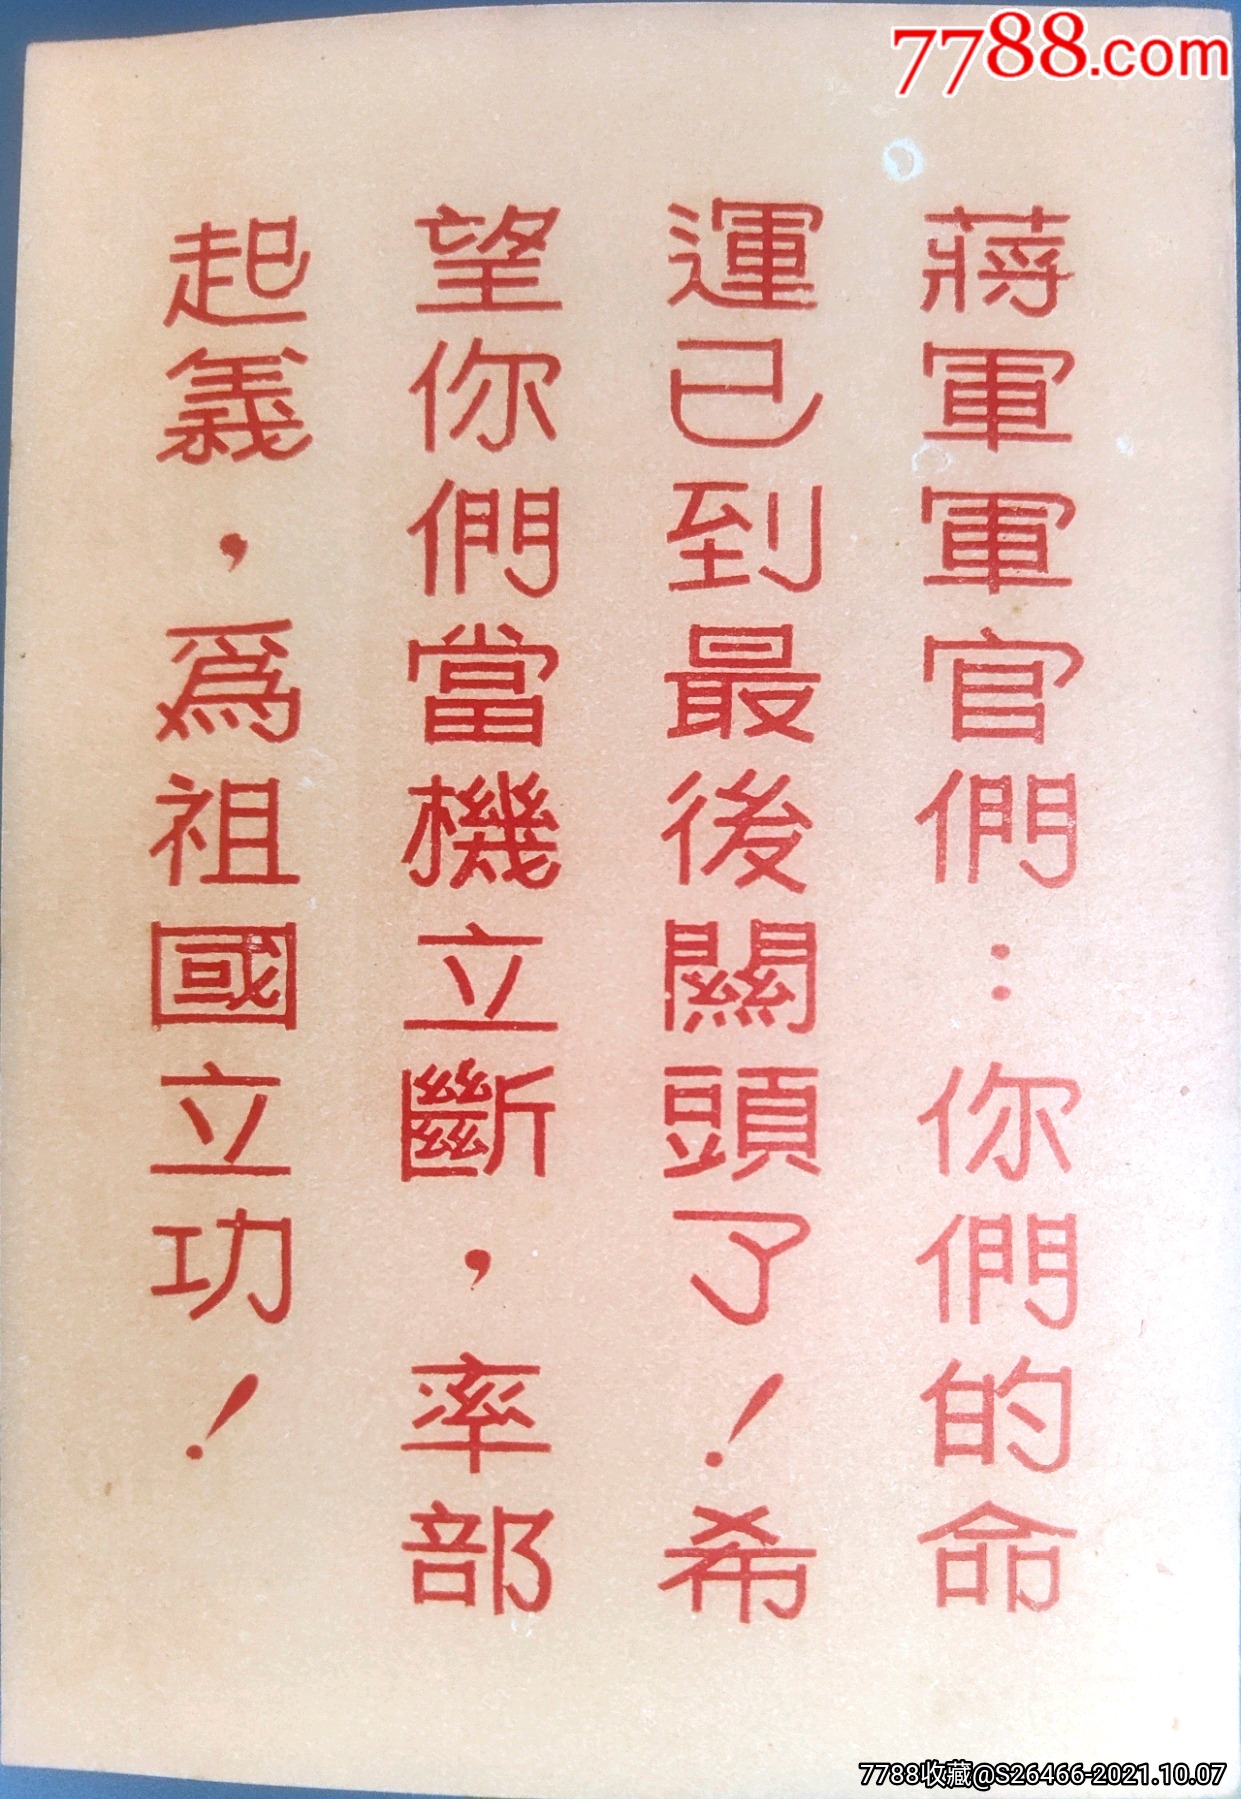 7788.com
蔣軍軍官們：你們的命
運已到最後關頭了！希
望你們當機立斷，率部
起義，為祖國立功！
7788收藏@S26466-2021.10.07